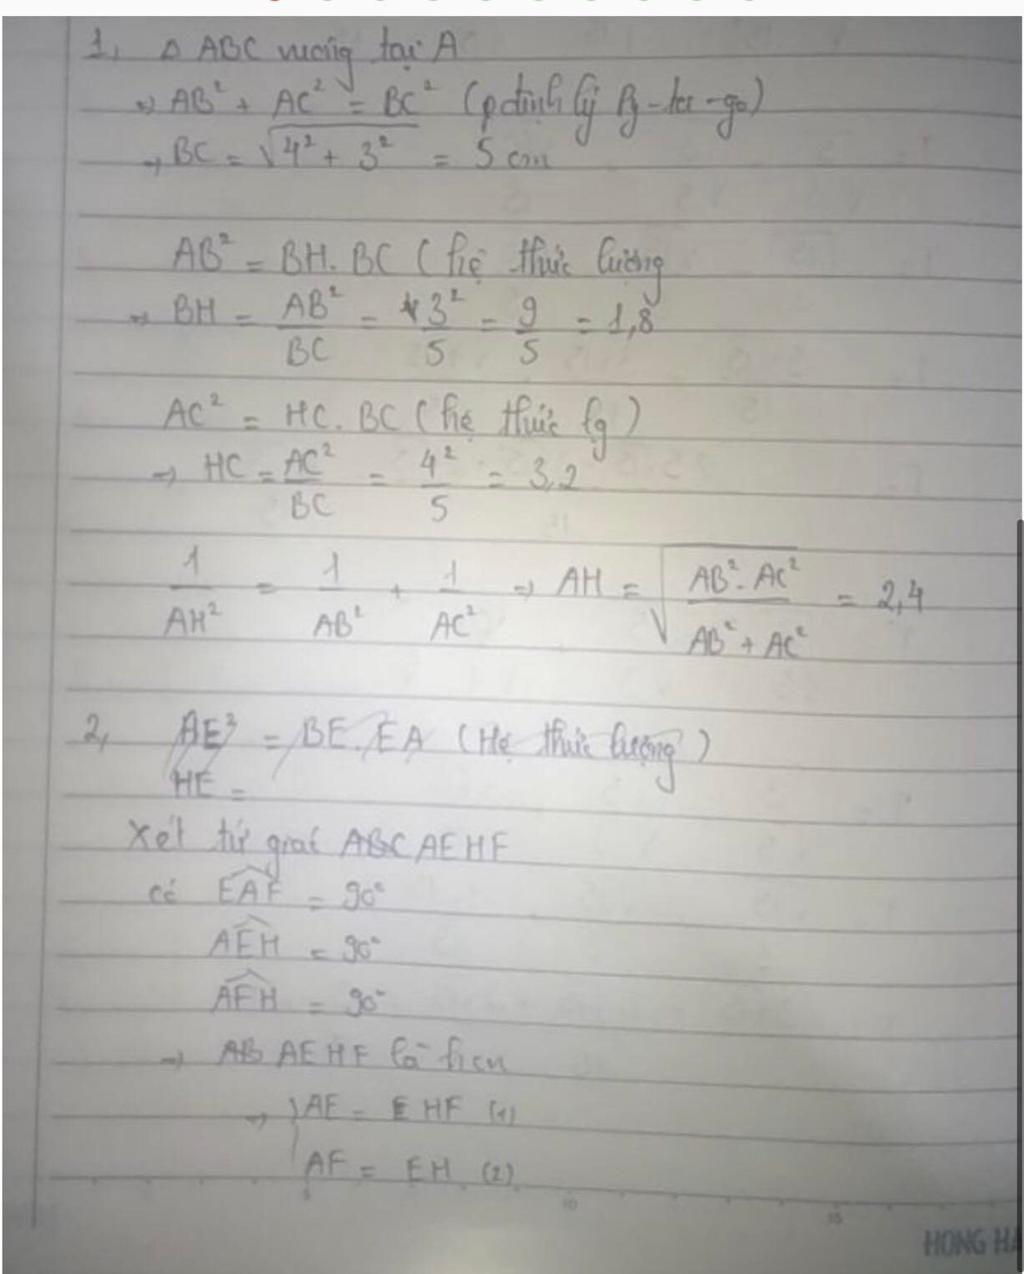 1, Δ ABC vuông tại A
→ AB² + AC² = BC² (định lý Py-ta-go)
→ BC = √4² + 3² = 5 cm
AB² = BH. BC (hệ thức lượng
→ BH = AB²/BC = 3²/5 = 9/5 = 1,8
AC² = HC. BC (hệ thức lg)
→ HC = AC²/BC = 4²/5 = 3,2
1/AH² = 1/AB² + 1/AC² → AH = √AB². AC²/AB² + AC² = 2,4
2, AE² = BE. EA (Hệ thức lượng)
HE =
Xét tứ giác ABC AEHF
có EAF = 90°
AEH = 90°
AFH = 90°
→ AB AEHF là hcn
→ { AE = E HF (1)
AF = EH (2)
5 10 15
HONG HA